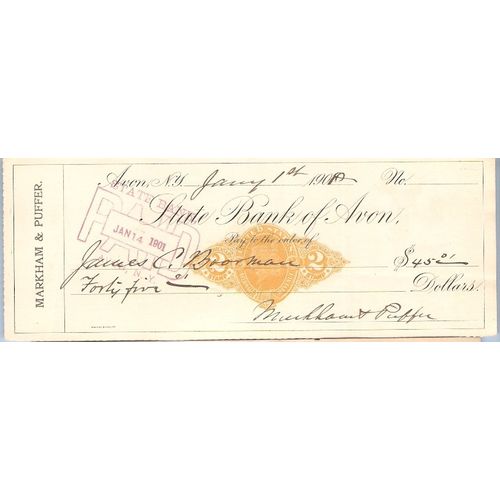 MARKHAM & PUFFER.
Avon, N.Y. Jany 1st 1901 No.
State Bank of Avon,
Pay to the order of
James C. Boorman $45 01
Forty five 01 Dollars
Markham & Puffer
STATE BANK
PAID
JAN 14 1901
N.Y.
2 2